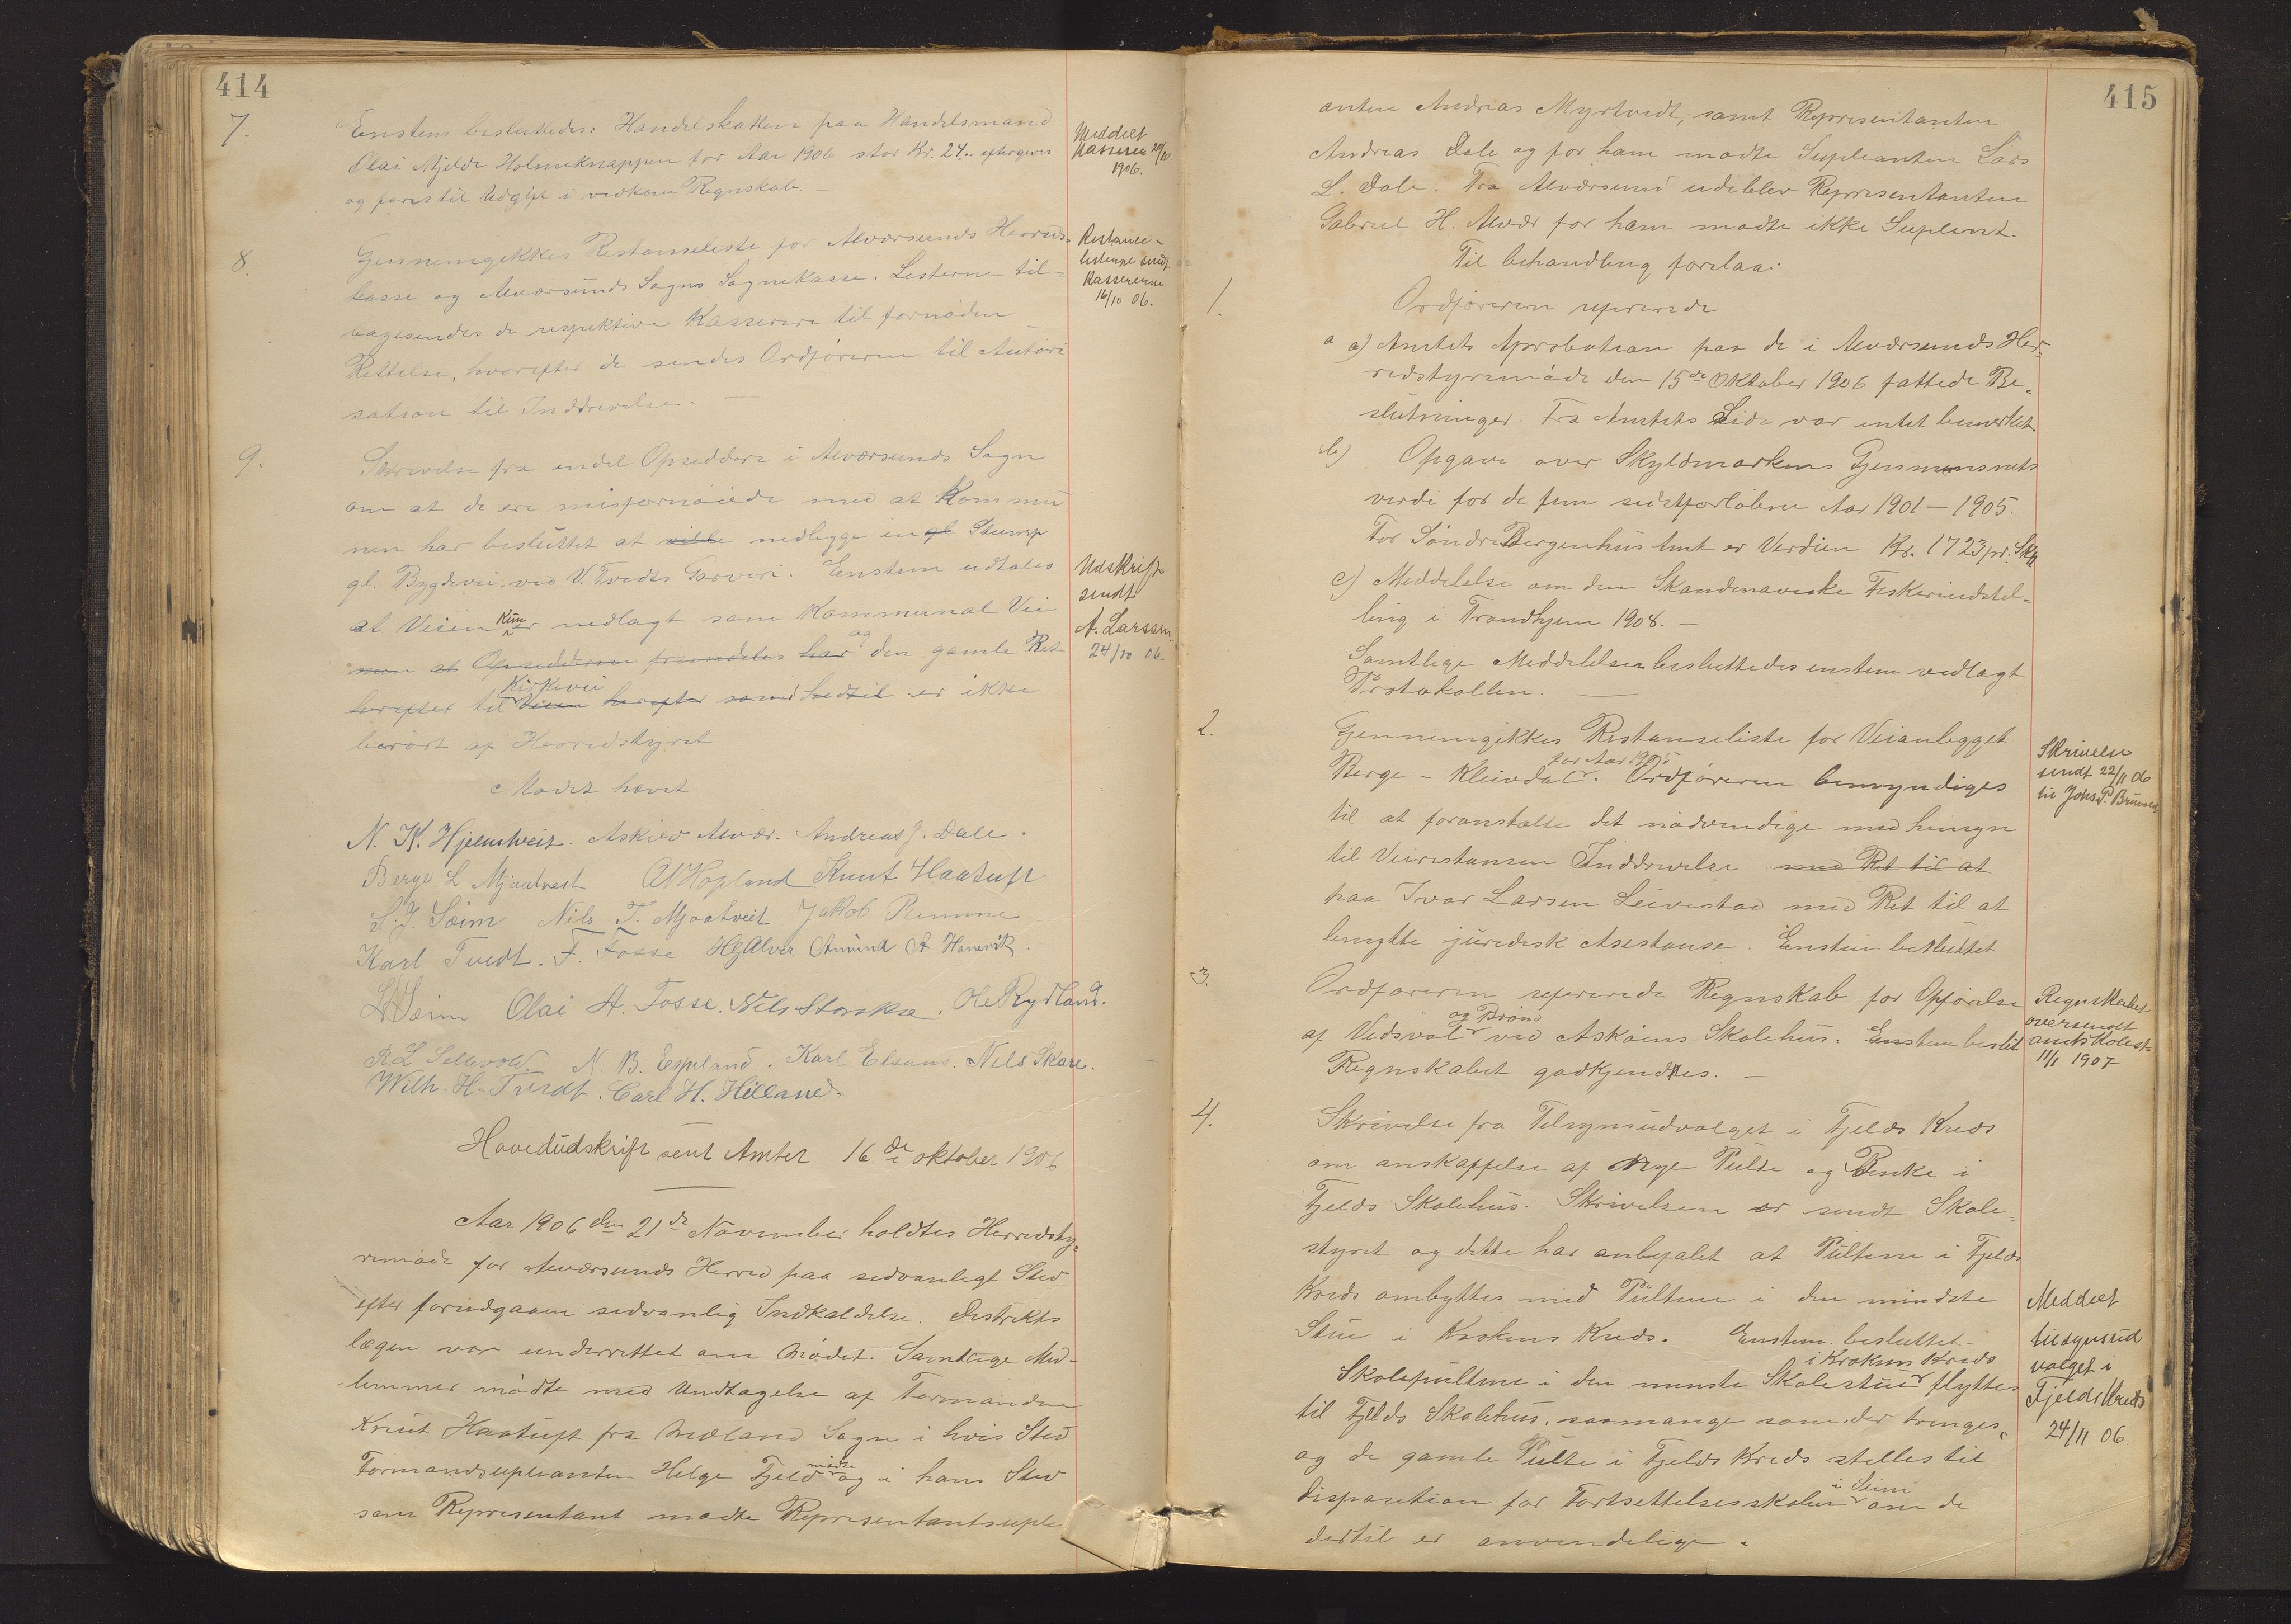 414
7.
Enstem besluttedes: Handelskatten paa Handelsmand
Olai Mjelde Holmeknappen for Aar 1906 stor Kr. 24.- eftergives
og føres til Udgift i vedkom Regnskab. -
Meddelt
Kasseren 20/10
1906.
8.
Gennemgikkes Restanseliste for Alværsunds Herreds-
kasse og Alværsunds Sogns Sognekasse. Listerne til-
bagesendes de respektive Kasserere til fornøden
Rettelse, hvorefter de sendes Ordføreren til Autori
sation til Inddrivelse. -
Restance-
listerne sendt
Kassererne
16/10 06.
9.
Skrivelse fra endel Opsiddere i Alværsunds Sogn
om at de ere misfornøiede med at Kommu
nen har besluttet at ville nedlægge en gl Stump
gl. Bygdevei ved V. Tvedts Garveri. Enstem udtales
at Veien kun er nedlagt som Kommunal Vei
som at Opsidderne fremdeles har og den gamle Ret
herefter til Kirkevei Veien herefter som hedtil er ikke
berørt af Herredstyret
Udskrift
sendt
A. Larssen
24/10 06.
Mødet hævet
N. K. Hjelmtveit. Askild Alvær. Andreas J. Dale.
Berge L Mjaatveit A Hopland Knut Haatuft
S. J. Seim Nils T. Mjaatveit Jakob Remme
Karl Tvedt. F. Fosse HGAlver Amund A Hanevik.
L Seim Olai A. Fosse. Nils Storske. Ole Rydland.
R L Sellevold. N. B. Espeland. Karl Elsaas. Nels Skare.
Wilh. H. Tvedt. Carl H. Hilland.
Hovedudskrift sent Amtet 16de oktober 1906
Aar 1906 den 21de November holdtes Herredsty-
remøde for Alværsunds Herred paa sedvanligt Sted
efter forudgaaen sedvanlig Indkaldelse. Distrikts
lægen var underrettet om Mødet. Samtlige Med-
lemmer mødte med Undtagelse af Formanden
Knut Haatuft fra Meland Sogn i hvis Sted
Formandsupleanten Helge Fjeld mødte og i hans Sted
som Representant mødte Representantsuple
415
anten Andreas Myrtvedt, samt Representanten
Andreas Dale og for ham mødte Supleanten Lars
L. Dale. Fra Alværsund udeblev Representanten
Gabriel H. Alvær for ham mødte ikke Suplent.
Til behandling forelaa:
1.
Ordføreren refererede
a a) Amtets Aprobation paa de i Alværsunds Her-
redstyremøde den 15de Oktober 1906 fattede Be-
slutninger. Fra Amtets Side var intet bemerket.
b) Opgave over Skyldmarkens Gjennemsnits
verdi for de fem sidstforløbne Aar 1901-1905.
For Søndre Bergenhus Amt er Verdien Kr. 1723 pr. Skm
c) Meddelelse om den Skandinaviske Fiskeriudstil-
ling i Trondhjem 1908. -
Samtlige Meddelelser besluttedes enstem vedlagt
Protokollen. -
2.
Gjennemgikkes Restanseliste for Veianlegget
Berge - Kleivdal for Aar 1905. Ordføreren bemyndiges
til at foranstalte det nødvendige med hensyn
til Veirestansen Inddrivelse med Ret til at
paa Ivar Larsen Leivestad med Ret til at
benytte juridisk Asistanse. Enstem besluttet
Skrivelse
sendt 22/11 06
til Johs. P.
3.
Ordføreren refererede Regnskab for Opførelse
af Vedsval og Brønd ved Askøens Skolehus. Enstem beslut
Regnskabet godkjendtes. -
Regnskabet
oversendt
amtskolest.
11/1 1907
4.
Skrivelse fra Tilsynsudvalget i Fjelds Kreds
om anskaffelse af Nye Pulte og Benke i
Fjelds Skolehus. Skrivelsen er sendt Skole-
styret og dette har anbefalet at Pultene i Fjelds
Kreds ombyttes med Pultene i den mindste
Stue i Krokens Kreds. - Enstem. besluttet -
Skolepultene i den minste Skolestue i Krokens Kreds flyttes
til Fjelds Skolehus, saamange som der trenges,
og de gamle Pulte i Fjelds Kreds stilles til
disposition for Fortsettelsesskolen i Seim om de
dertil er anvendelige.
Meddelt
tilsynsud
valget i
Fjelds Kreds
24/11 06.